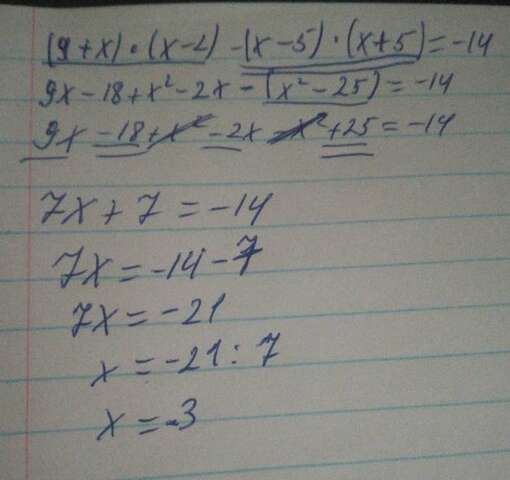 (9+x)·(x-2)-(x-5)·(x+5)=-14
9x-18+x²-2x-(x²-25)=-14
9x-18+x²-2x-x²+25=-14
7x+7=-14
7x=-14-7
7x=-21
x=-21:7
x=-3